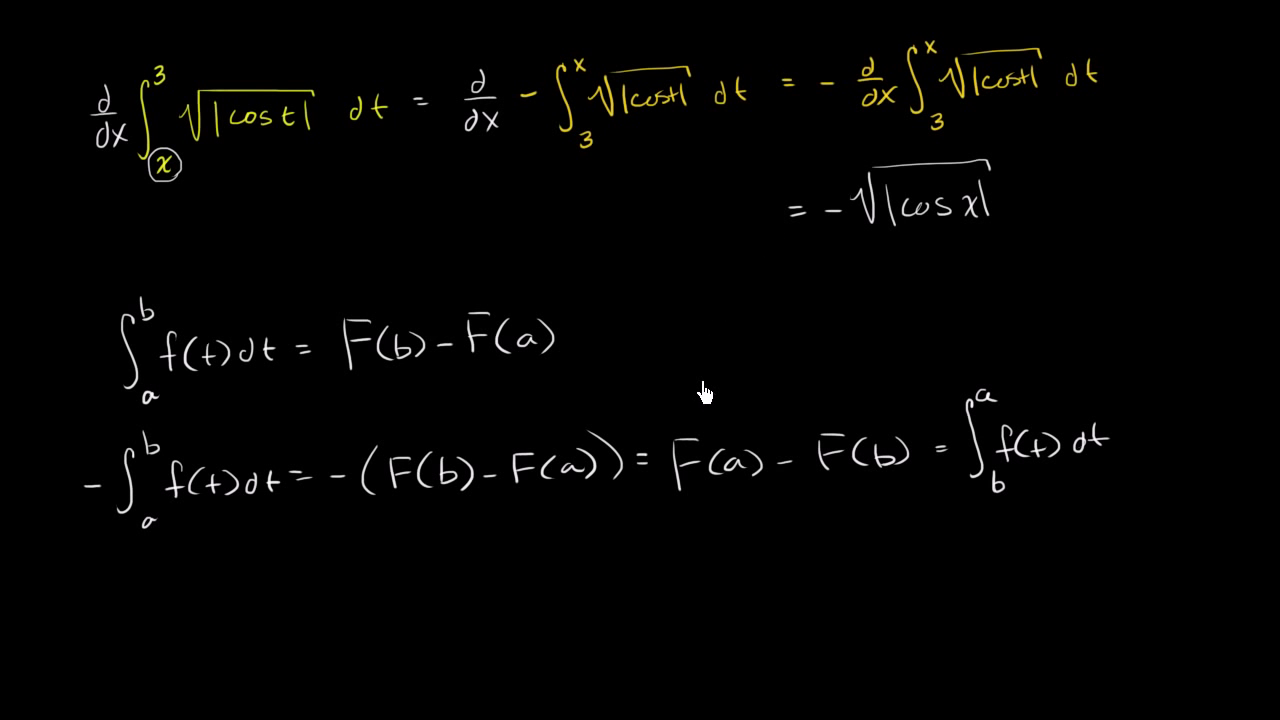 d/dx ∫_x^3 √|cos t| dt = d/dx - ∫_3^x √|cost| dt = - d/dx ∫_3^x √|cost| dt
= - √|cos x|
∫_a^b f(t) dt = F(b) - F(a)
- ∫_a^b f(t) dt = - (F(b) - F(a)) = F(a) - F(b) = ∫_b^a f(t) dt